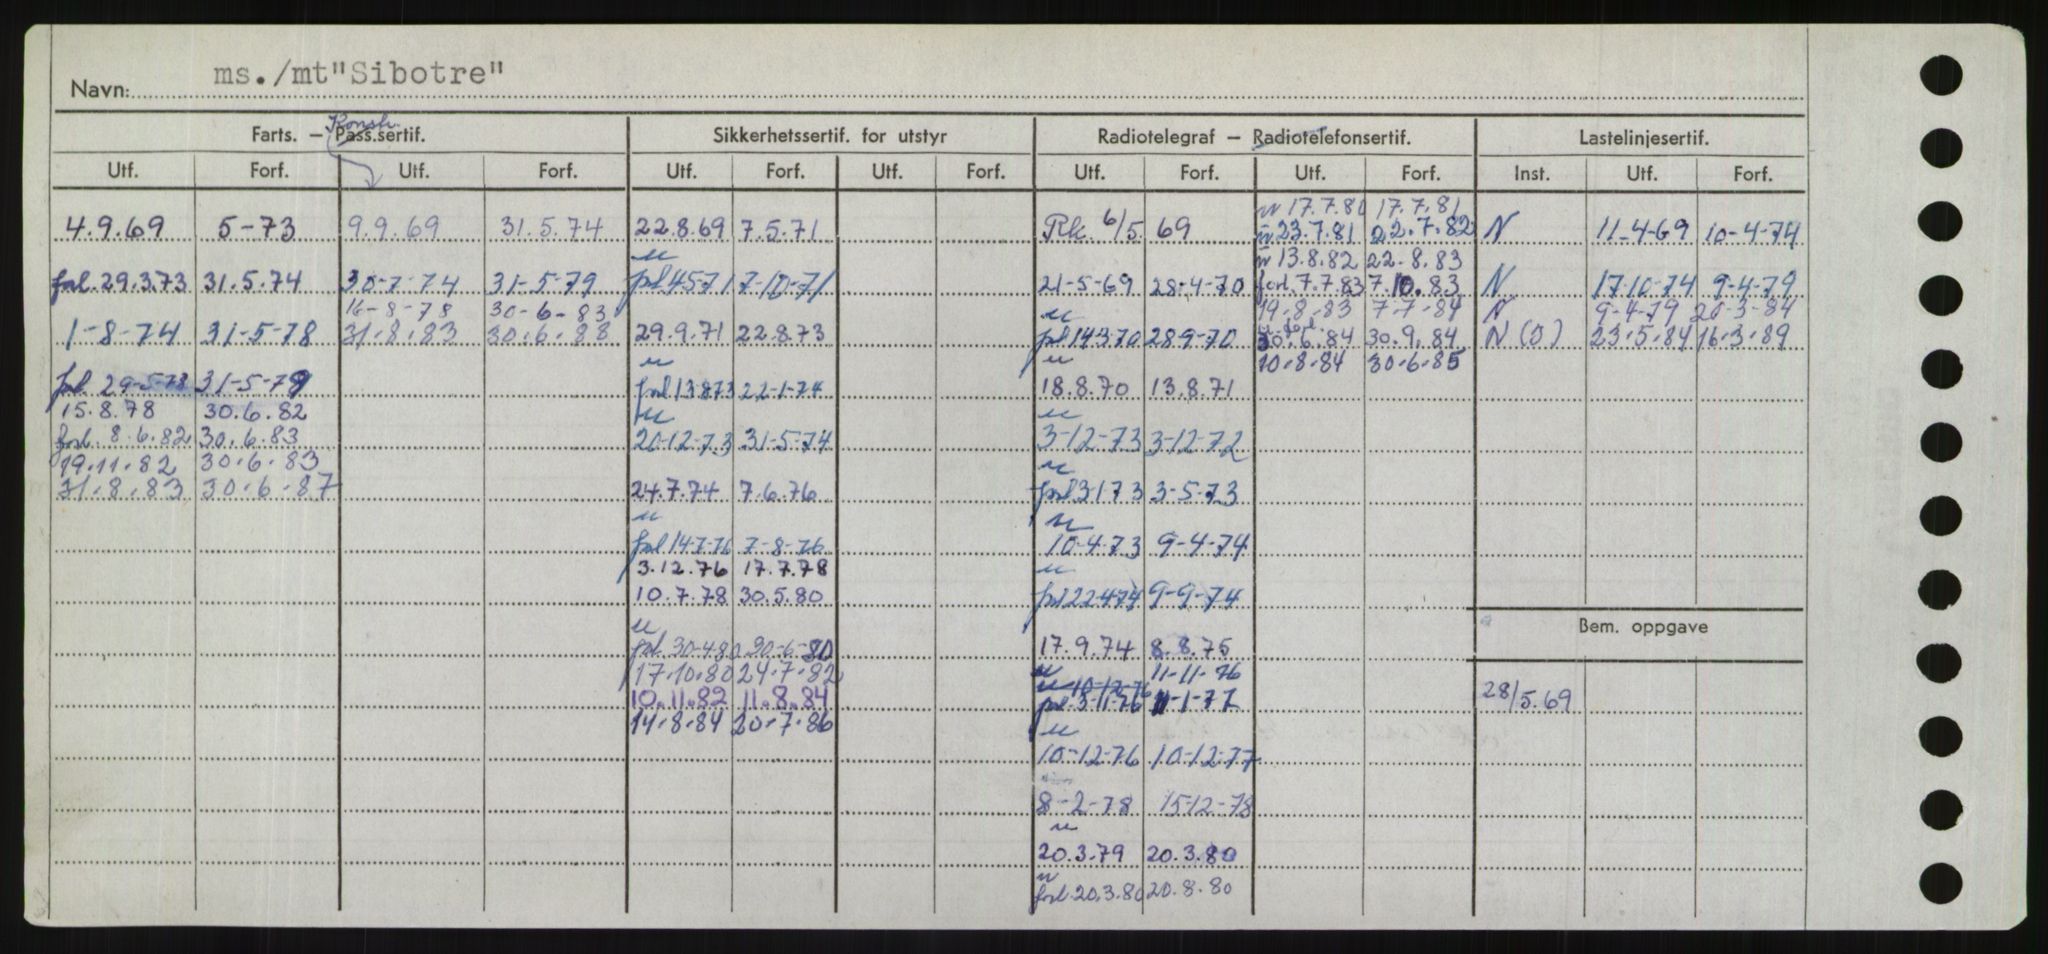 Navn: ms./mt"Sibotre"
Farts. – Pass.sertif. Konstr. Sikkerhetssertif. for utstyr Radiotelegraf – Radiotelefonsertif. Lastelinjesertif.
Utf. Forf. Utf. Forf. Utf. Forf. Utf. Forf. Utf. Forf. Utf. Forf. Inst. Utf. Forf.
u 17.7.80 17.7.81
4.9.69 5-73 9.9.69 31.5.74 22.8.69 7.5.71 Rk. 6/5 69 u 23.7.81 22.7.82 N 11-4-69 10-4-74
u u 13.8.82 22.8.83
forl. 29.3.73 31.5.74 30-7-74 31-5-79 forl 4571 7-10-71 21-5-69 28-4-70 forl. 7.7.83 7.10.83 N 17-10-74 9-4-79
16-8-78 30-6-83 u 19.8.83 7.7.84 N 9-4-79 20-3-84
1-8-74 31-5-78 31.8.83 30.6.88 29.9.71 22.8.73 forl 14370 28-9-70 30.6.84 30.9.84 N (O) 23.5.84 16.3.89
u u 10.8.84 30.6.85
forl. 29-5-78 31-5-79 forl 13873 22-1-74 18.8.70 13.8.71
15.8.78 30.6.82 u u
forl. 8.6.82 30.6.83 20-12-73 31-5-74 3-12-73 3-12-72
19.11.82 30.6.83 u
31.8.83 30.6.87 24.7.74 7.6.76 forl 3173 3-5-73
u u
forl 14-7-76 7-8-76 10-4-73 9-4-74
3.12.76 17.7.78 u
10.7.78 30.5.80 forl 22474 9-9-74
u
forl. 30-4-80 30-6-80 17.9.74 8.8.75
17.10.80 24.7.82 u 11-11-76
10.11.82 11.8.84 u 10-12-76
forl. 3-11-76 11-1-77
14.8.84 20.7.86 u
10-12-76 10-12-77
8-2-78 15-12-78
u
20.3.79 20.3.80
u
forl. 20.3.80 20.8.80
Bem. oppgave
28/5.69